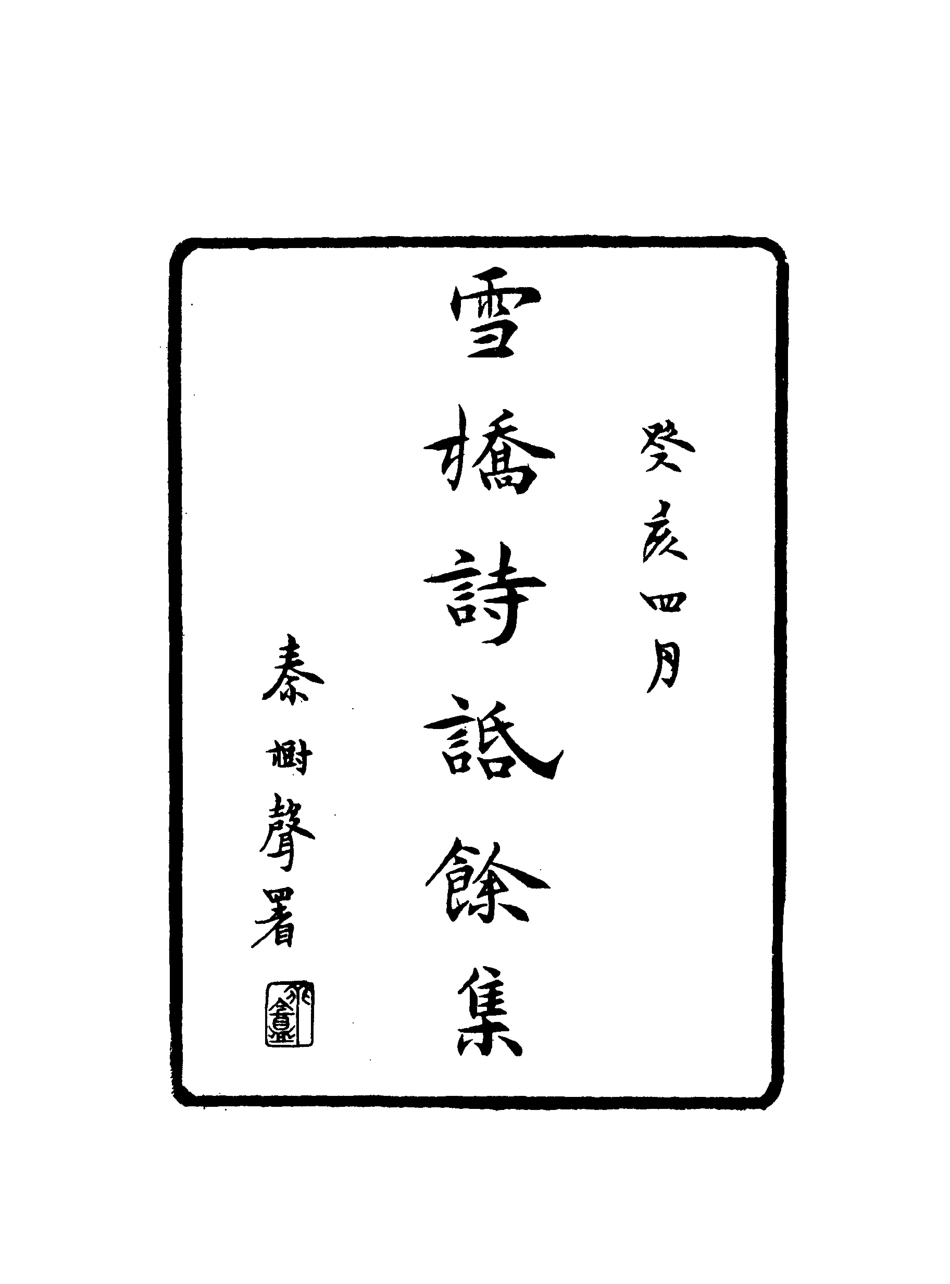 癸亥四月
雪橋詩䛡餘集
秦樹聲署